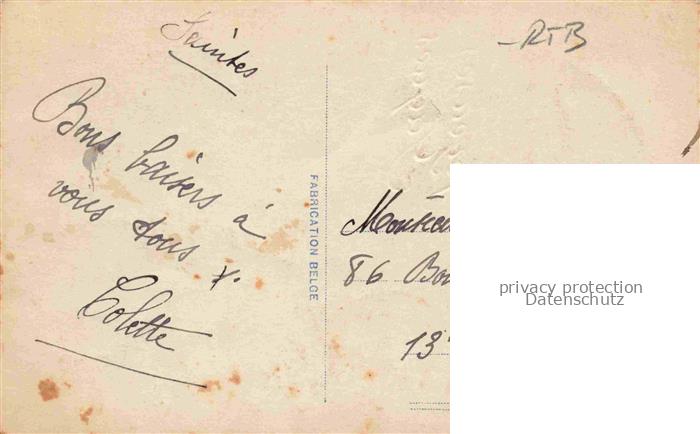 Saintes
RTB
Bons baisers à
vous tous
Colette
FABRICATION BELGE
86
13
privacy protection
Datenschutz